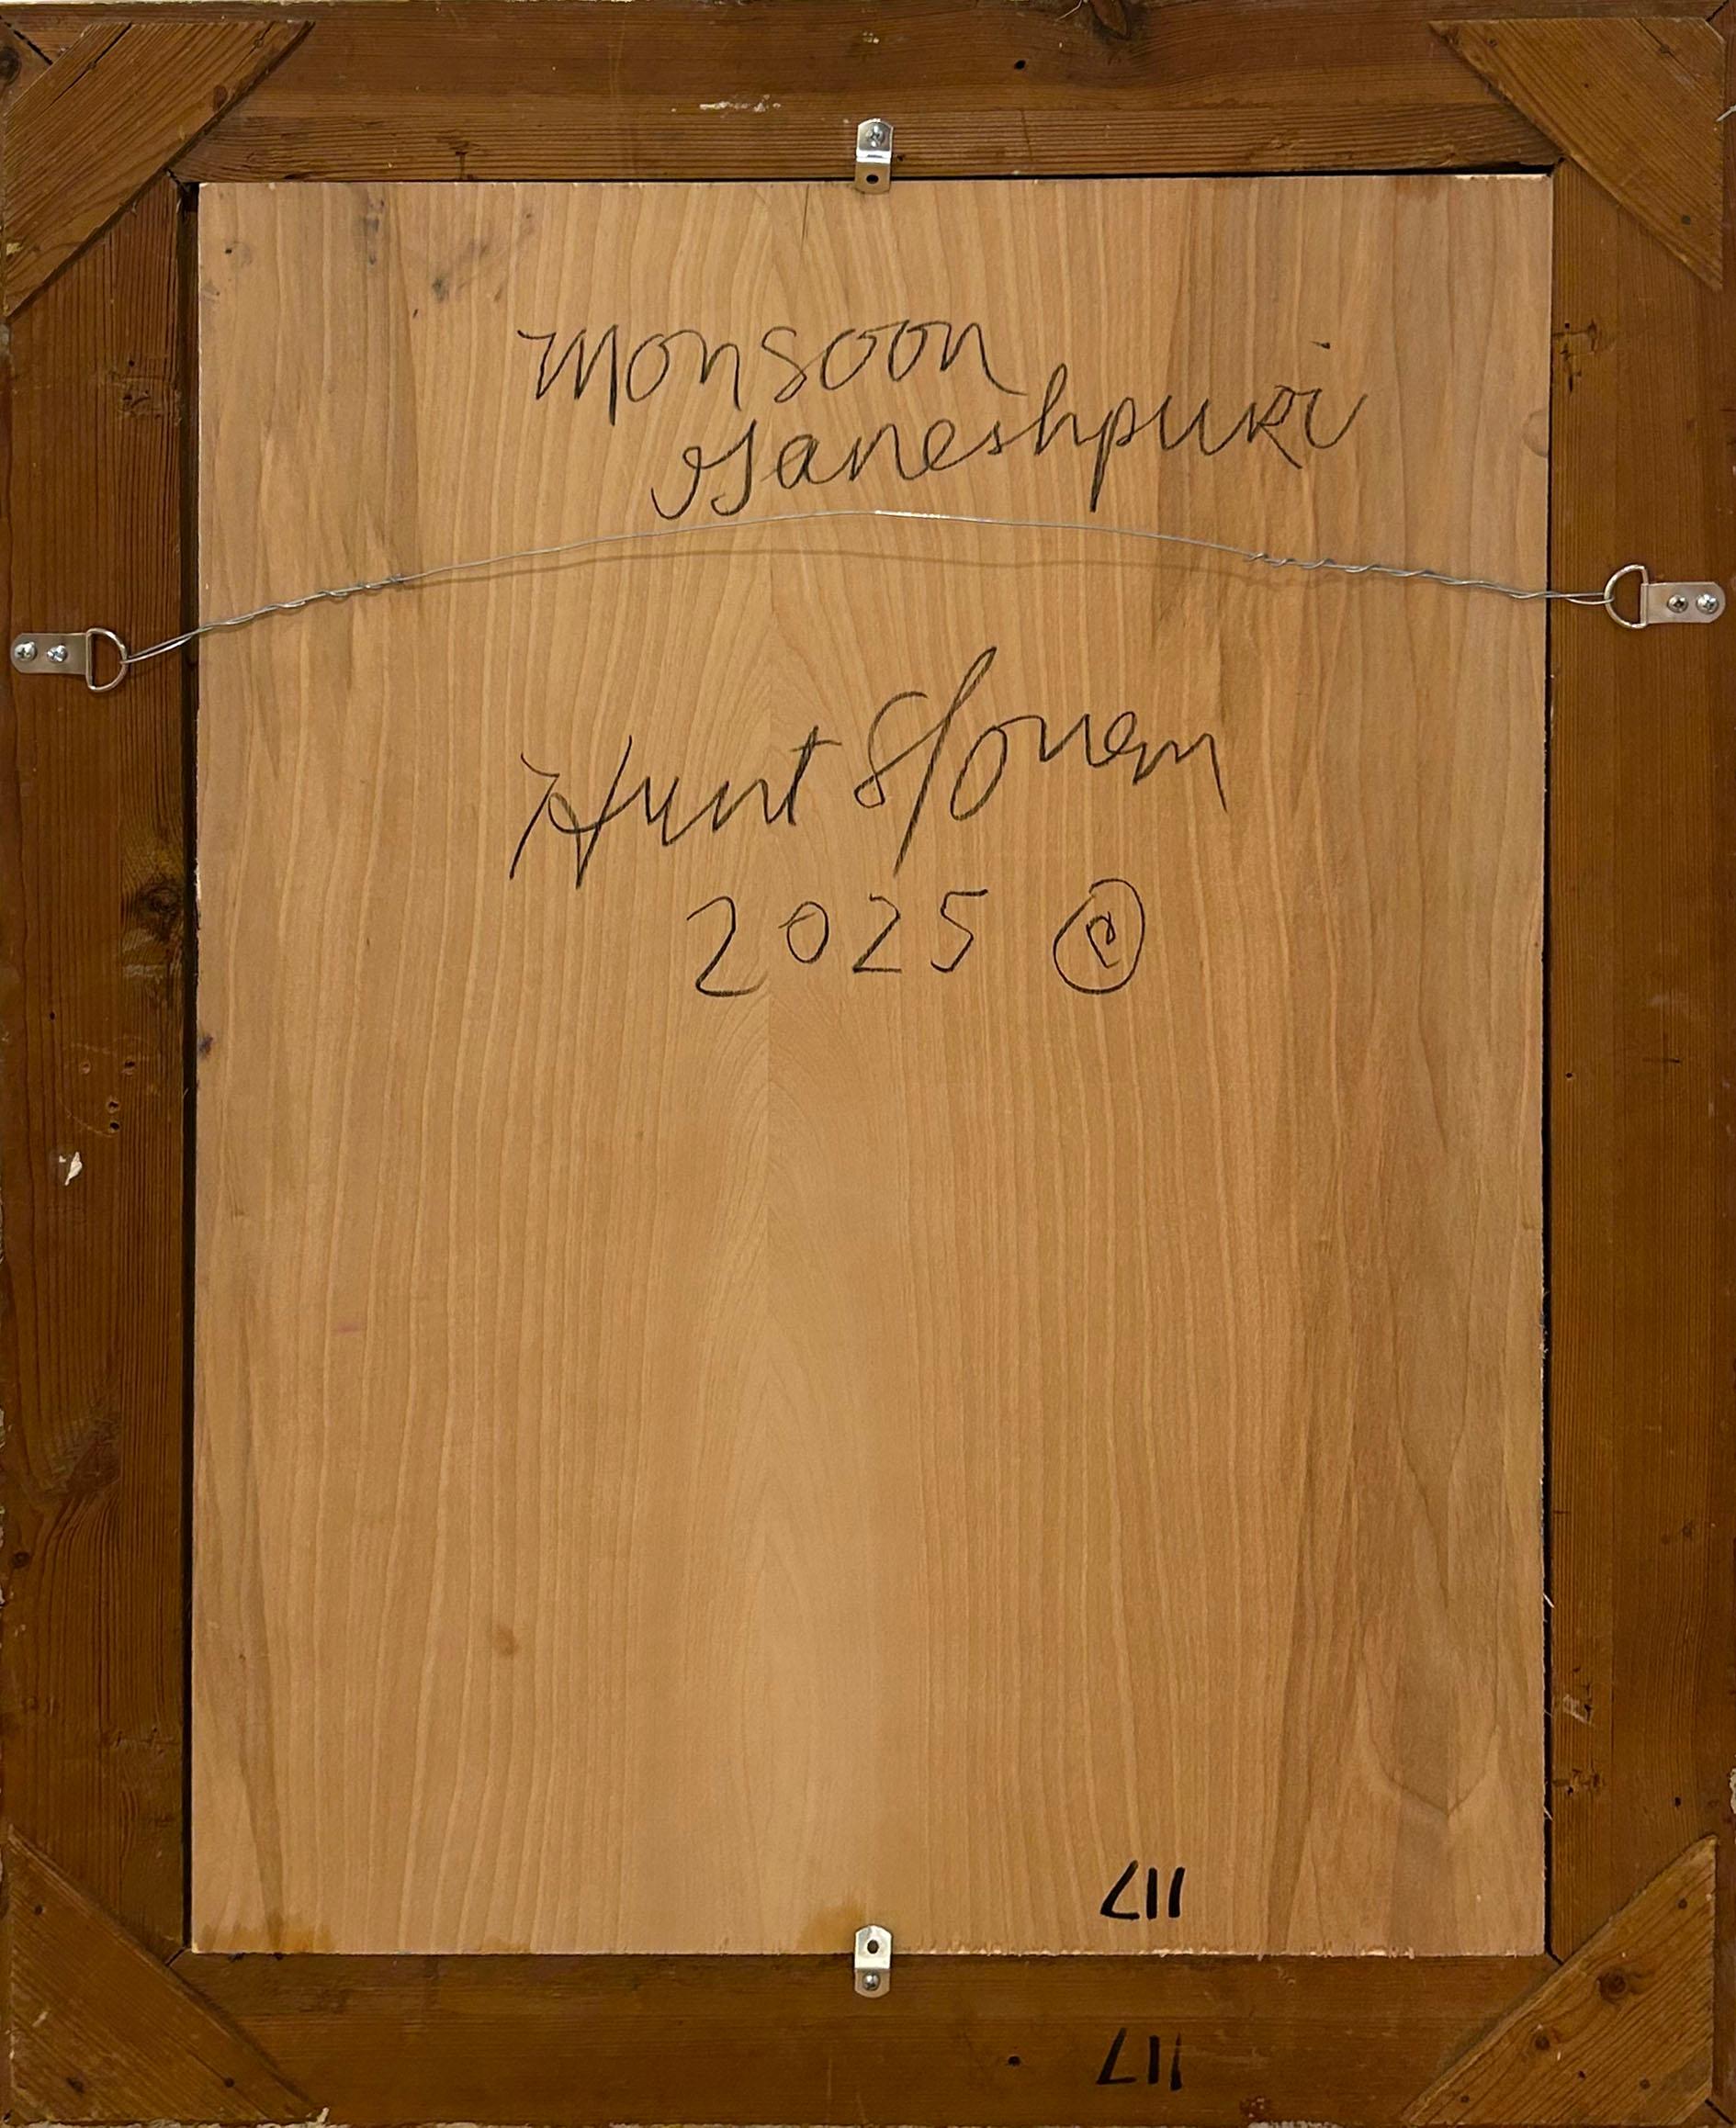 Monsoon
Ganeshpuri
Hunt Slonem
2025 ©
117
117